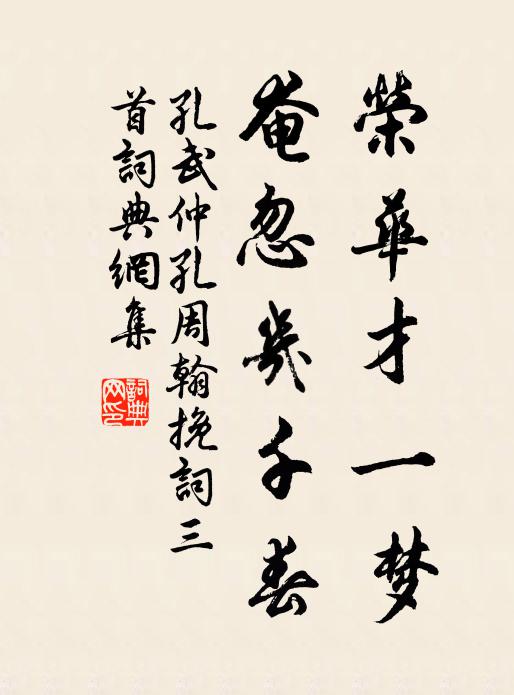 榮華才一梦
奄忽幾千春
孔武仲孔周翰挽詞三
首詞典網集
詞典网印